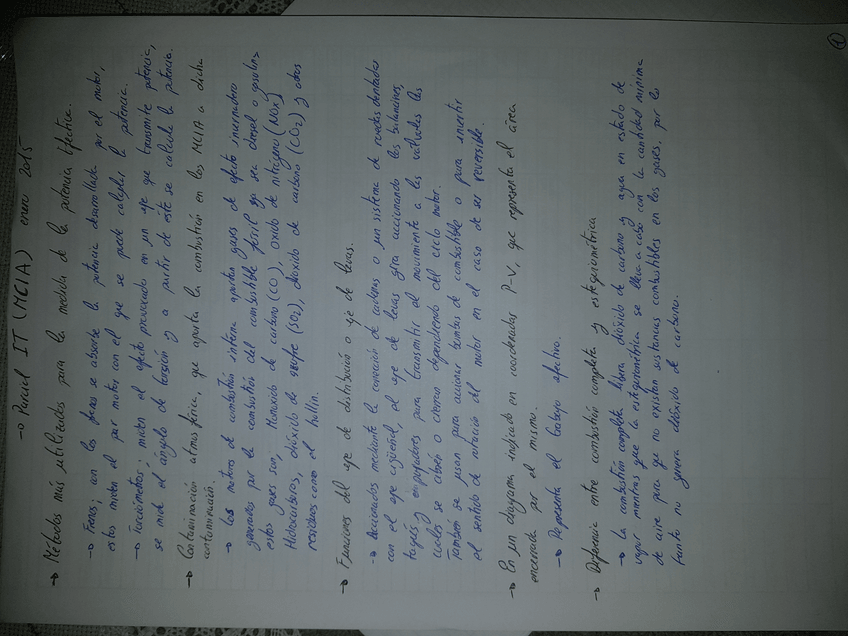 ①
→ Parcial IT (MCIA) enero 2015
→ Métodos más utilizados para la medida de la potencia efectiva.
→ Frenos; con los frenos se absorbe la potencia desarrollada por el motor,
estos miden el par motor con el que se puede calcular la potencia.
→ Torciómetros: miden el efecto provocado en un eje que transmite potencia,
se mide el ángulo de torsión y a partir de este se calcula la potencia.
→ Contaminación atmosférica, que aporta la combustión en los MCIA a dicha
contaminación.
→ Los motores de combustión interna aportan gases de efecto invernadero
generados por la combustión del combustible fósil ya sea diesel o gasolina
estos gases son, Monóxido de carbono (CO), óxido de nitrógeno (NOx)
Hidrocarburos, dióxido de azufre (SO2), dióxido de carbono (CO2) y otros
residuos como el hollín.
→ Funciones del eje de distribución o eje de levas.
→ Accionados mediante la conexión de cadenas o un sistema de ruedas dentadas
con el eje cigüeñal, el eje de levas gira accionando los balancines,
taqués y empujadores para transmitir el movimiento a las válvulas las
cuales se abren o cierran dependiendo del ciclo motor.
También se usan para accionar bombas de combustible o para invertir
el sentido de rotación del motor en el caso de ser reversible.
→ En un diagrama indicado en coordenadas P-V, que representa el área
encerrada por el mismo.
→ Representa el trabajo efectivo.
→ Diferencia entre combustión completa y estequiométrica
→ La combustión completa libera dióxido de carbono y agua en estado de
vapor mientras que la estequiométrica se lleva a cabo con la cantidad mínima
de aire para que no existan sustancias combustibles en los gases, por lo
tanto no genera dióxido de carbono.